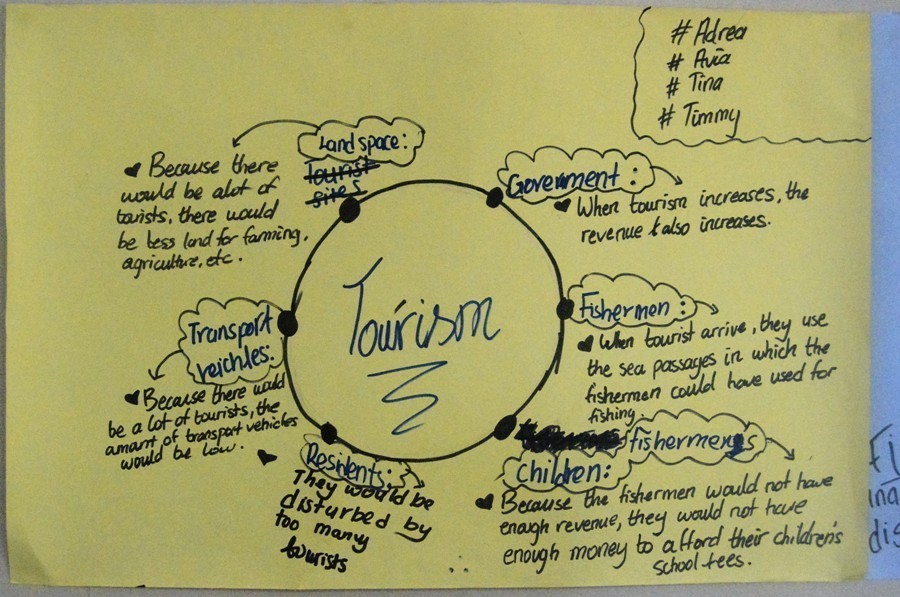 # Adrea
# Avia
# Tina
# Timmy
Land space:
Tourist
sites
Because there
would be alot of
tourists, there would
be less land for farming,
agriculture, etc.
Government:
When tourism increases, the
revenue also increases.
Tourism
Fishermen:
When tourist arrive, they use
the sea passages in which the
fishermen could have used for
fishing.
Transport
veichles:
Because there would
be a lot of tourists, the
amount of transport vehicles
would be low.
Residents:
They would be
disturbed by
too many
tourists
fishermen's
children:
Because the fishermen would not have
enough revenue, they would not have
enough money to afford their children's
school fees.
Fi
ina
dis